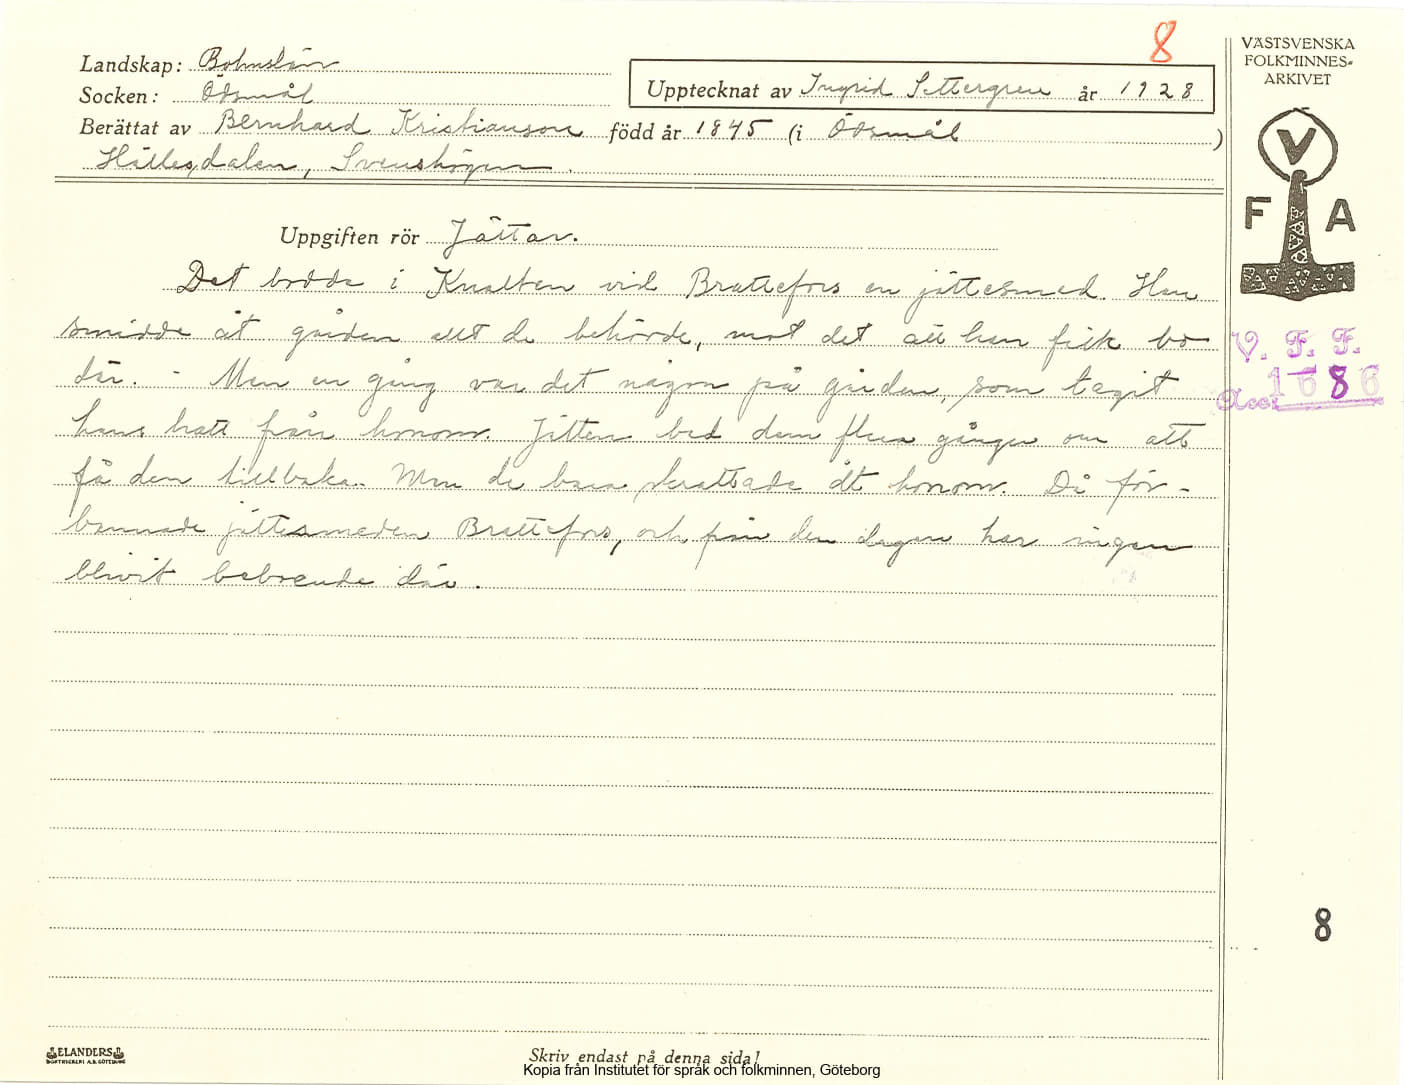 8
VÄSTSVENSKA
FOLKMINNES-
ARKIVET
Landskap: Bohuslän
Upptecknat av Ingrid Settergren år 1928
Socken: Ödsmål
Berättat av Bernhard Kristiansson född år 1845 (i Ödsmål)
Hällesdalen, Svenshögen.
V
F A
Uppgiften rör Jättar.
Det bodde i Knalten vid Brattefors en jättesmed. Han
smidde åt gården allt de behövde, mot det att han fick bo
där. - Men en gång var det någon på gården, som tagit
hans hatt från honom. Jätten bad dem flera gånger om att
få den tillbaka. Men de bara skrattade åt honom. Då för-
bannade jättesmeden Brattefors, och från den dagen har ingen
blivit beboende där.
V. F. F.
Acc: 1686
8
ELANDERS
BOKTRYCKERI A.B. GÖTEBORG
Skriv endast på denna sida!
Kopia från Institutet för språk och folkminnen, Göteborg